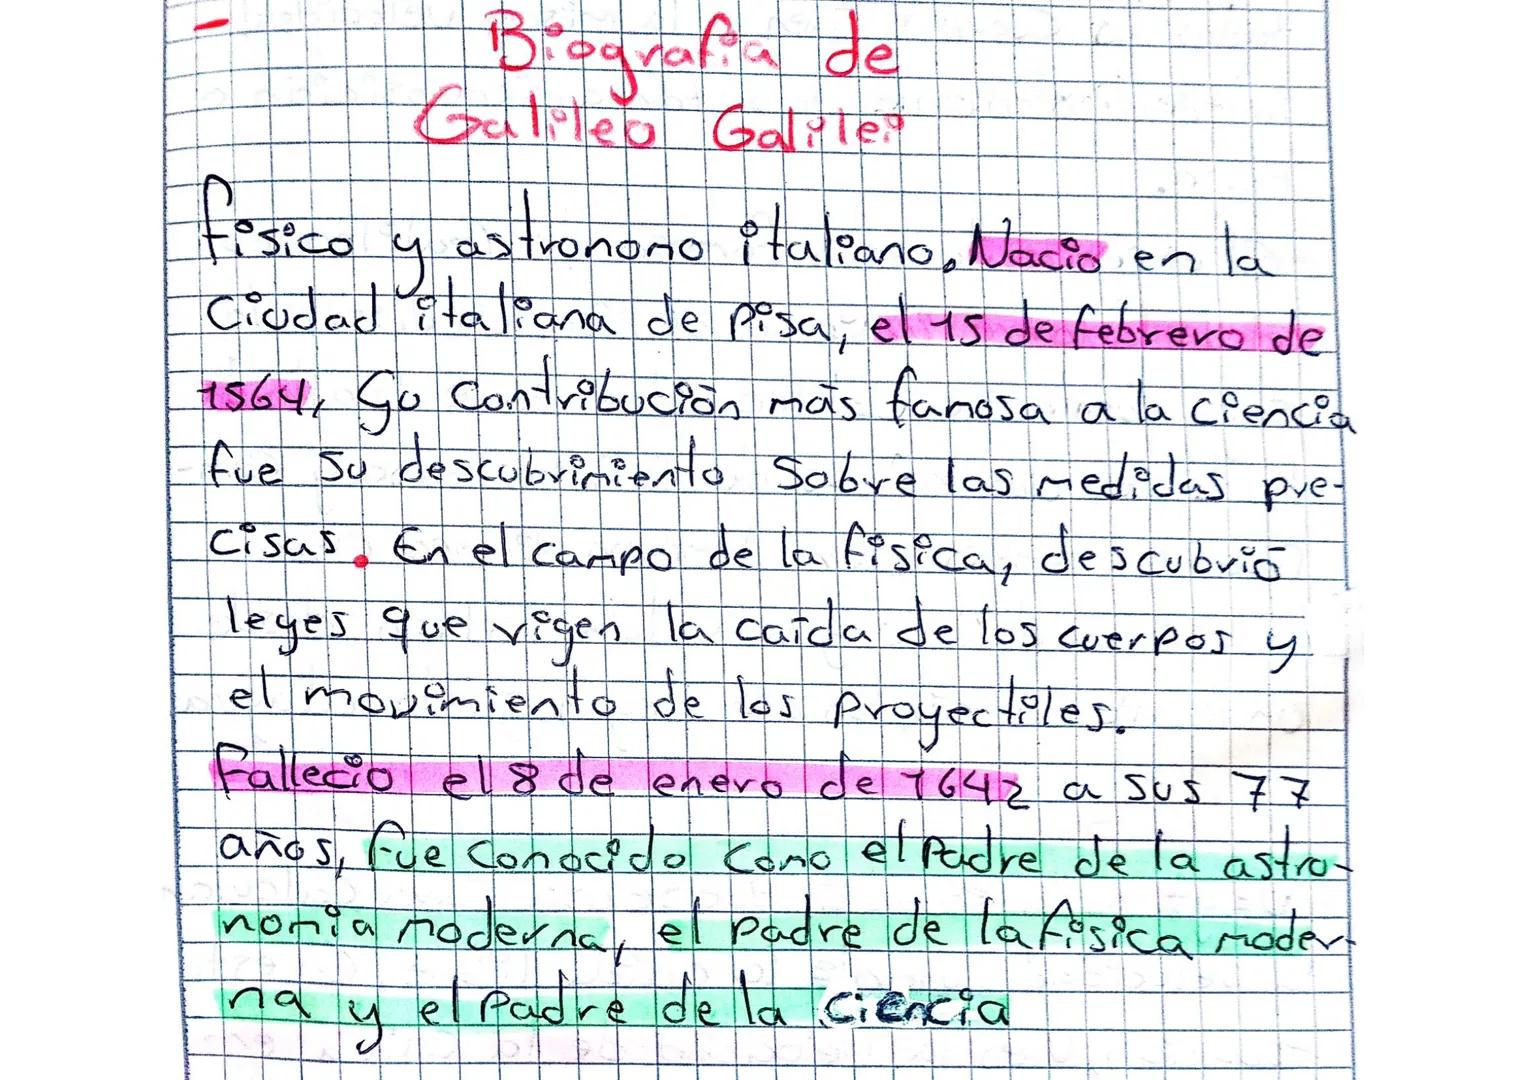 Biografia de
Galileo Galilei
físico y astronomo italiano, Nacio en la
Ciudad italiana de Pisa, el 15 de febrero de
1564, Su Contribución más famosa a la ciencia
fue su descubrimiento Sobre las medidas pre-
cisas. En el campo de la física, descubrió
leyes que rigen la caída de los cuerpos y
el movimiento de los proyectiles.
Fallecio el 8 de enero de 1642 a sus 77
años, fue conocido como el Padre de la astro-
nomia moderna, el padre de la física moder-
na y el Padre de la ciencia